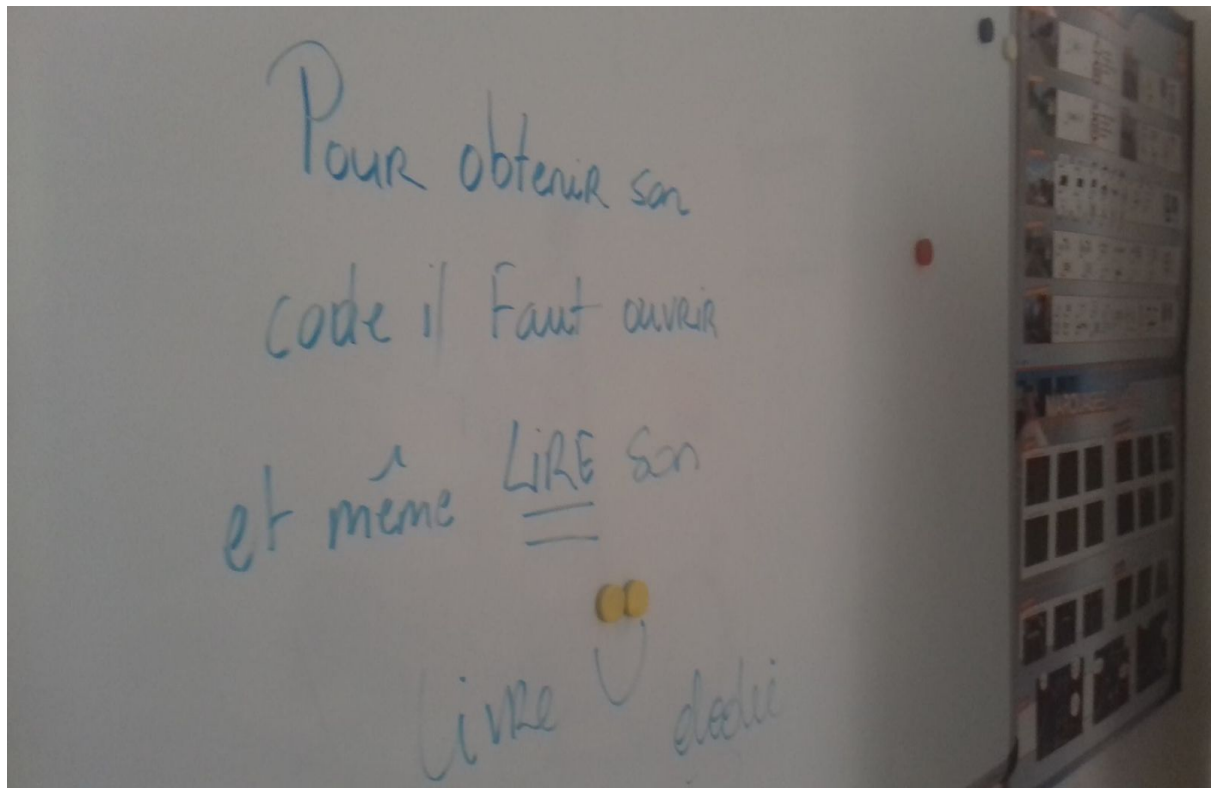 Pour obtenir son
code il Faut ouvrir
et même LIRE son
Livre dédié